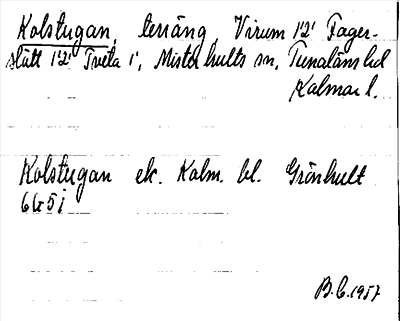 Kolstugan, terräng, Virum 1'2' Fager-
slätt 1'2' Tveta 1', Misterhults sn, Tunaläns hd
Kalmar l.
Kolstugan ek. Kalm. bl. Grönhult
6G5i
B.C. 1957